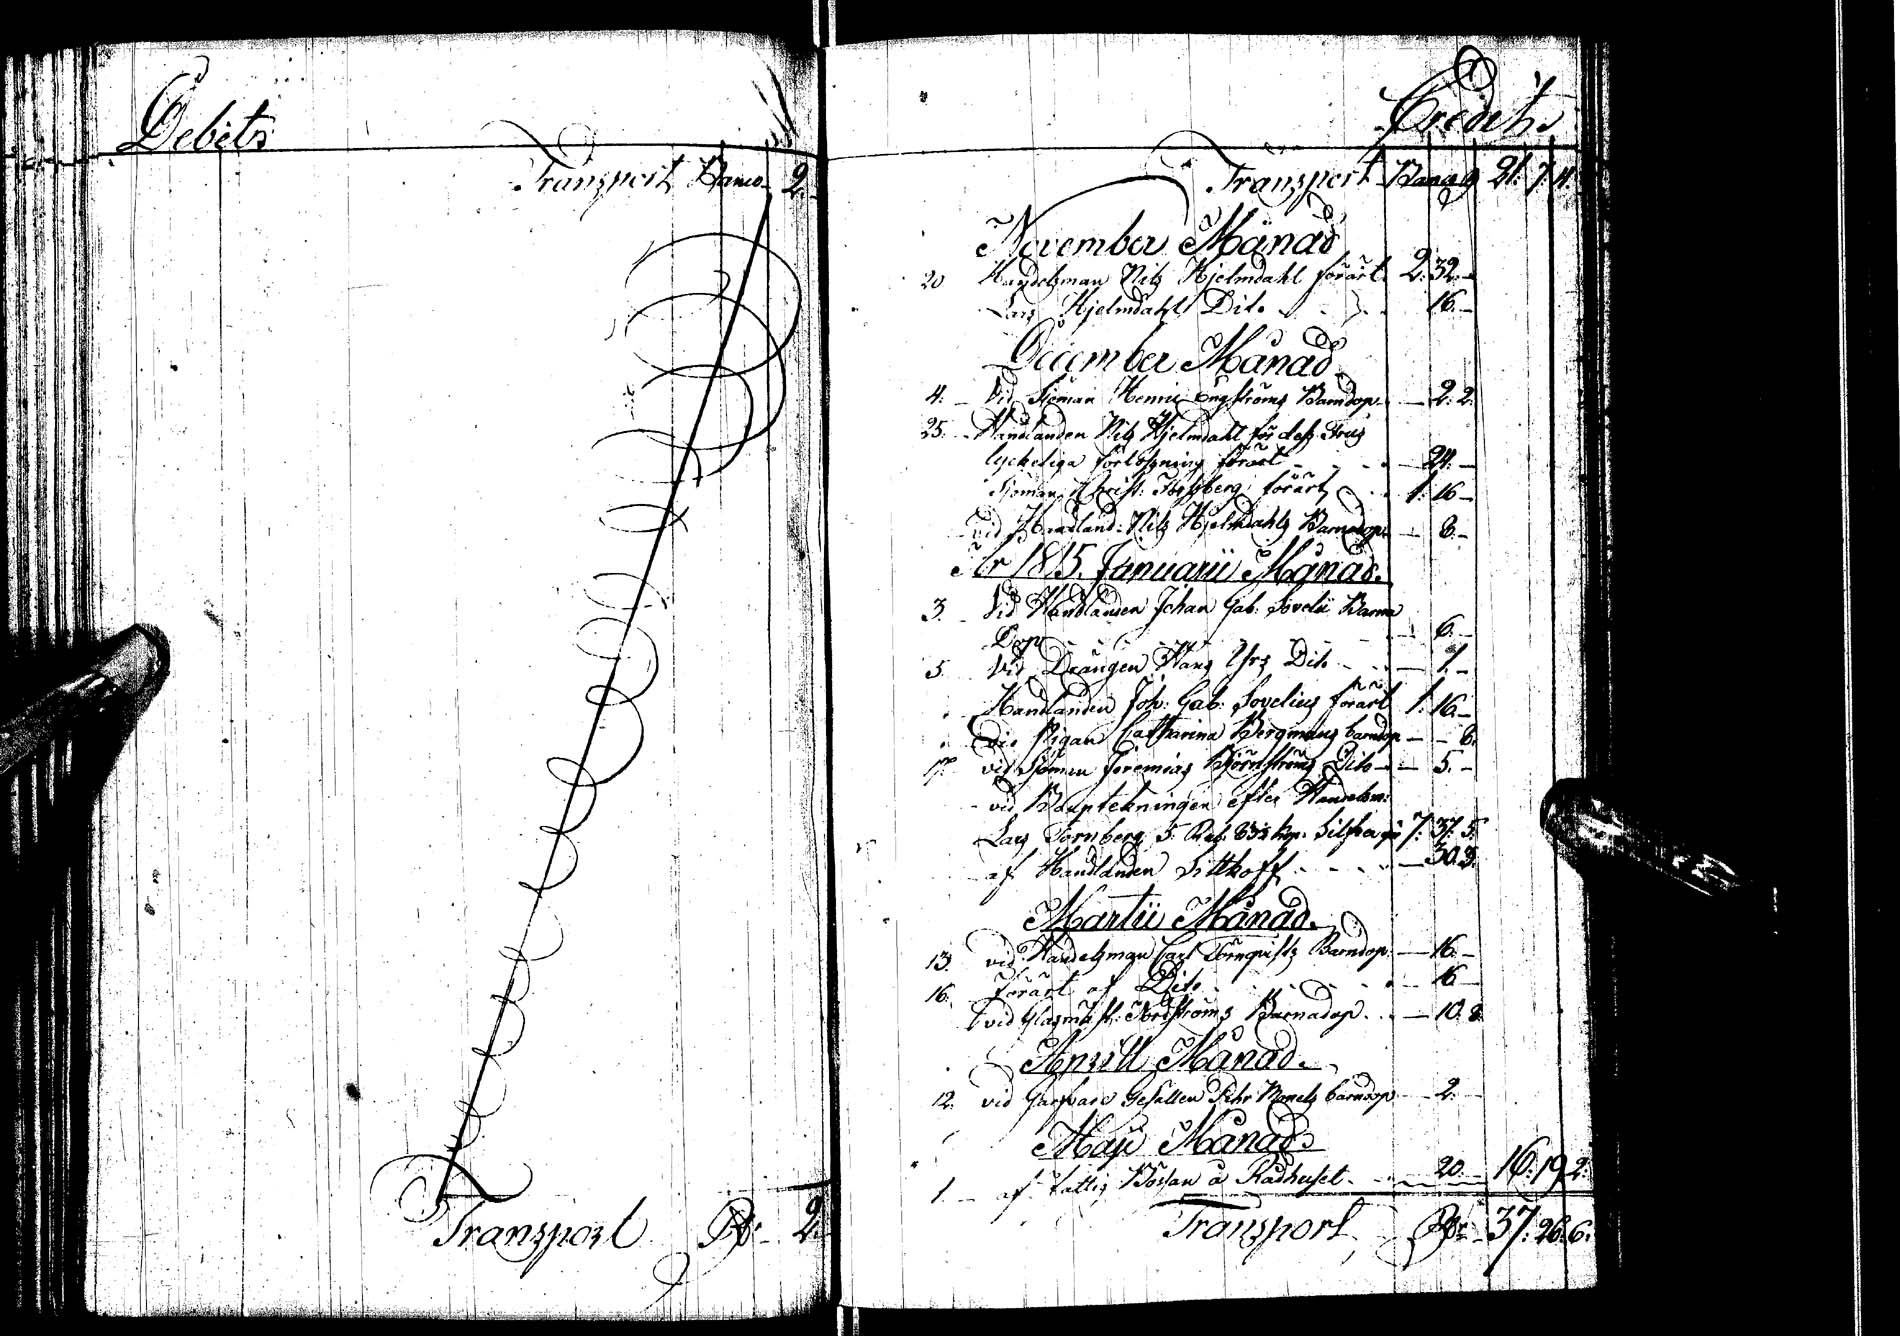 Debets
Transport Banco 2.
Transport Rd: 2.
Credits
Transport Banco 21: 7: 4.
November Månad
20 Handelsman Nils Hjelmdahl förärt 2: 32.-
Lars Hjelmdahl Dito 16.-
December Månad
4: Vid Sjöman Henric Engströms Barndop 2. 2.
25. Handlanden Nils Hjelmdahl för dess Frus
lyckeliga förlossning förärt 24.-
Sjöman Christ: förärt 1: 16.-
vid Handland: Nils Hjelmdahls Barnadop 8.-
År 1815. Januarii Månad.
3. Vid Handlanden Johan Gab: Sovelii Barna
Dop 6.-
5 Vid Drängen Hans Dito 1.-
Handlanden Joh: Gab: Sovelius förärt 1: 16.-
Vid Pigan Catharina Bergmans barndop 8.
17. vid Sjöman Jeremias Björnströms Dito 5.-
vid efter Handelsm:
Lars Tornberg 5 Rub: kop: Silfver 7: 37. 5.
af Handlanden Sittkoff 30. 8.
Martii Månad.
13. vid Handelsman Carl Törnqvists Barndop. 16.-
16. förärt af Dito 16
vid Glasmäst: Barnadop 10. 8.
Aprill Månad.
12. vid Garfvare Gesällen Pehr barndop 2.
Maji Månad.
1. af fattig Bössan å Rådhuset 20. 16: 19. 2.
Transport Rd: 37: 26: 6.